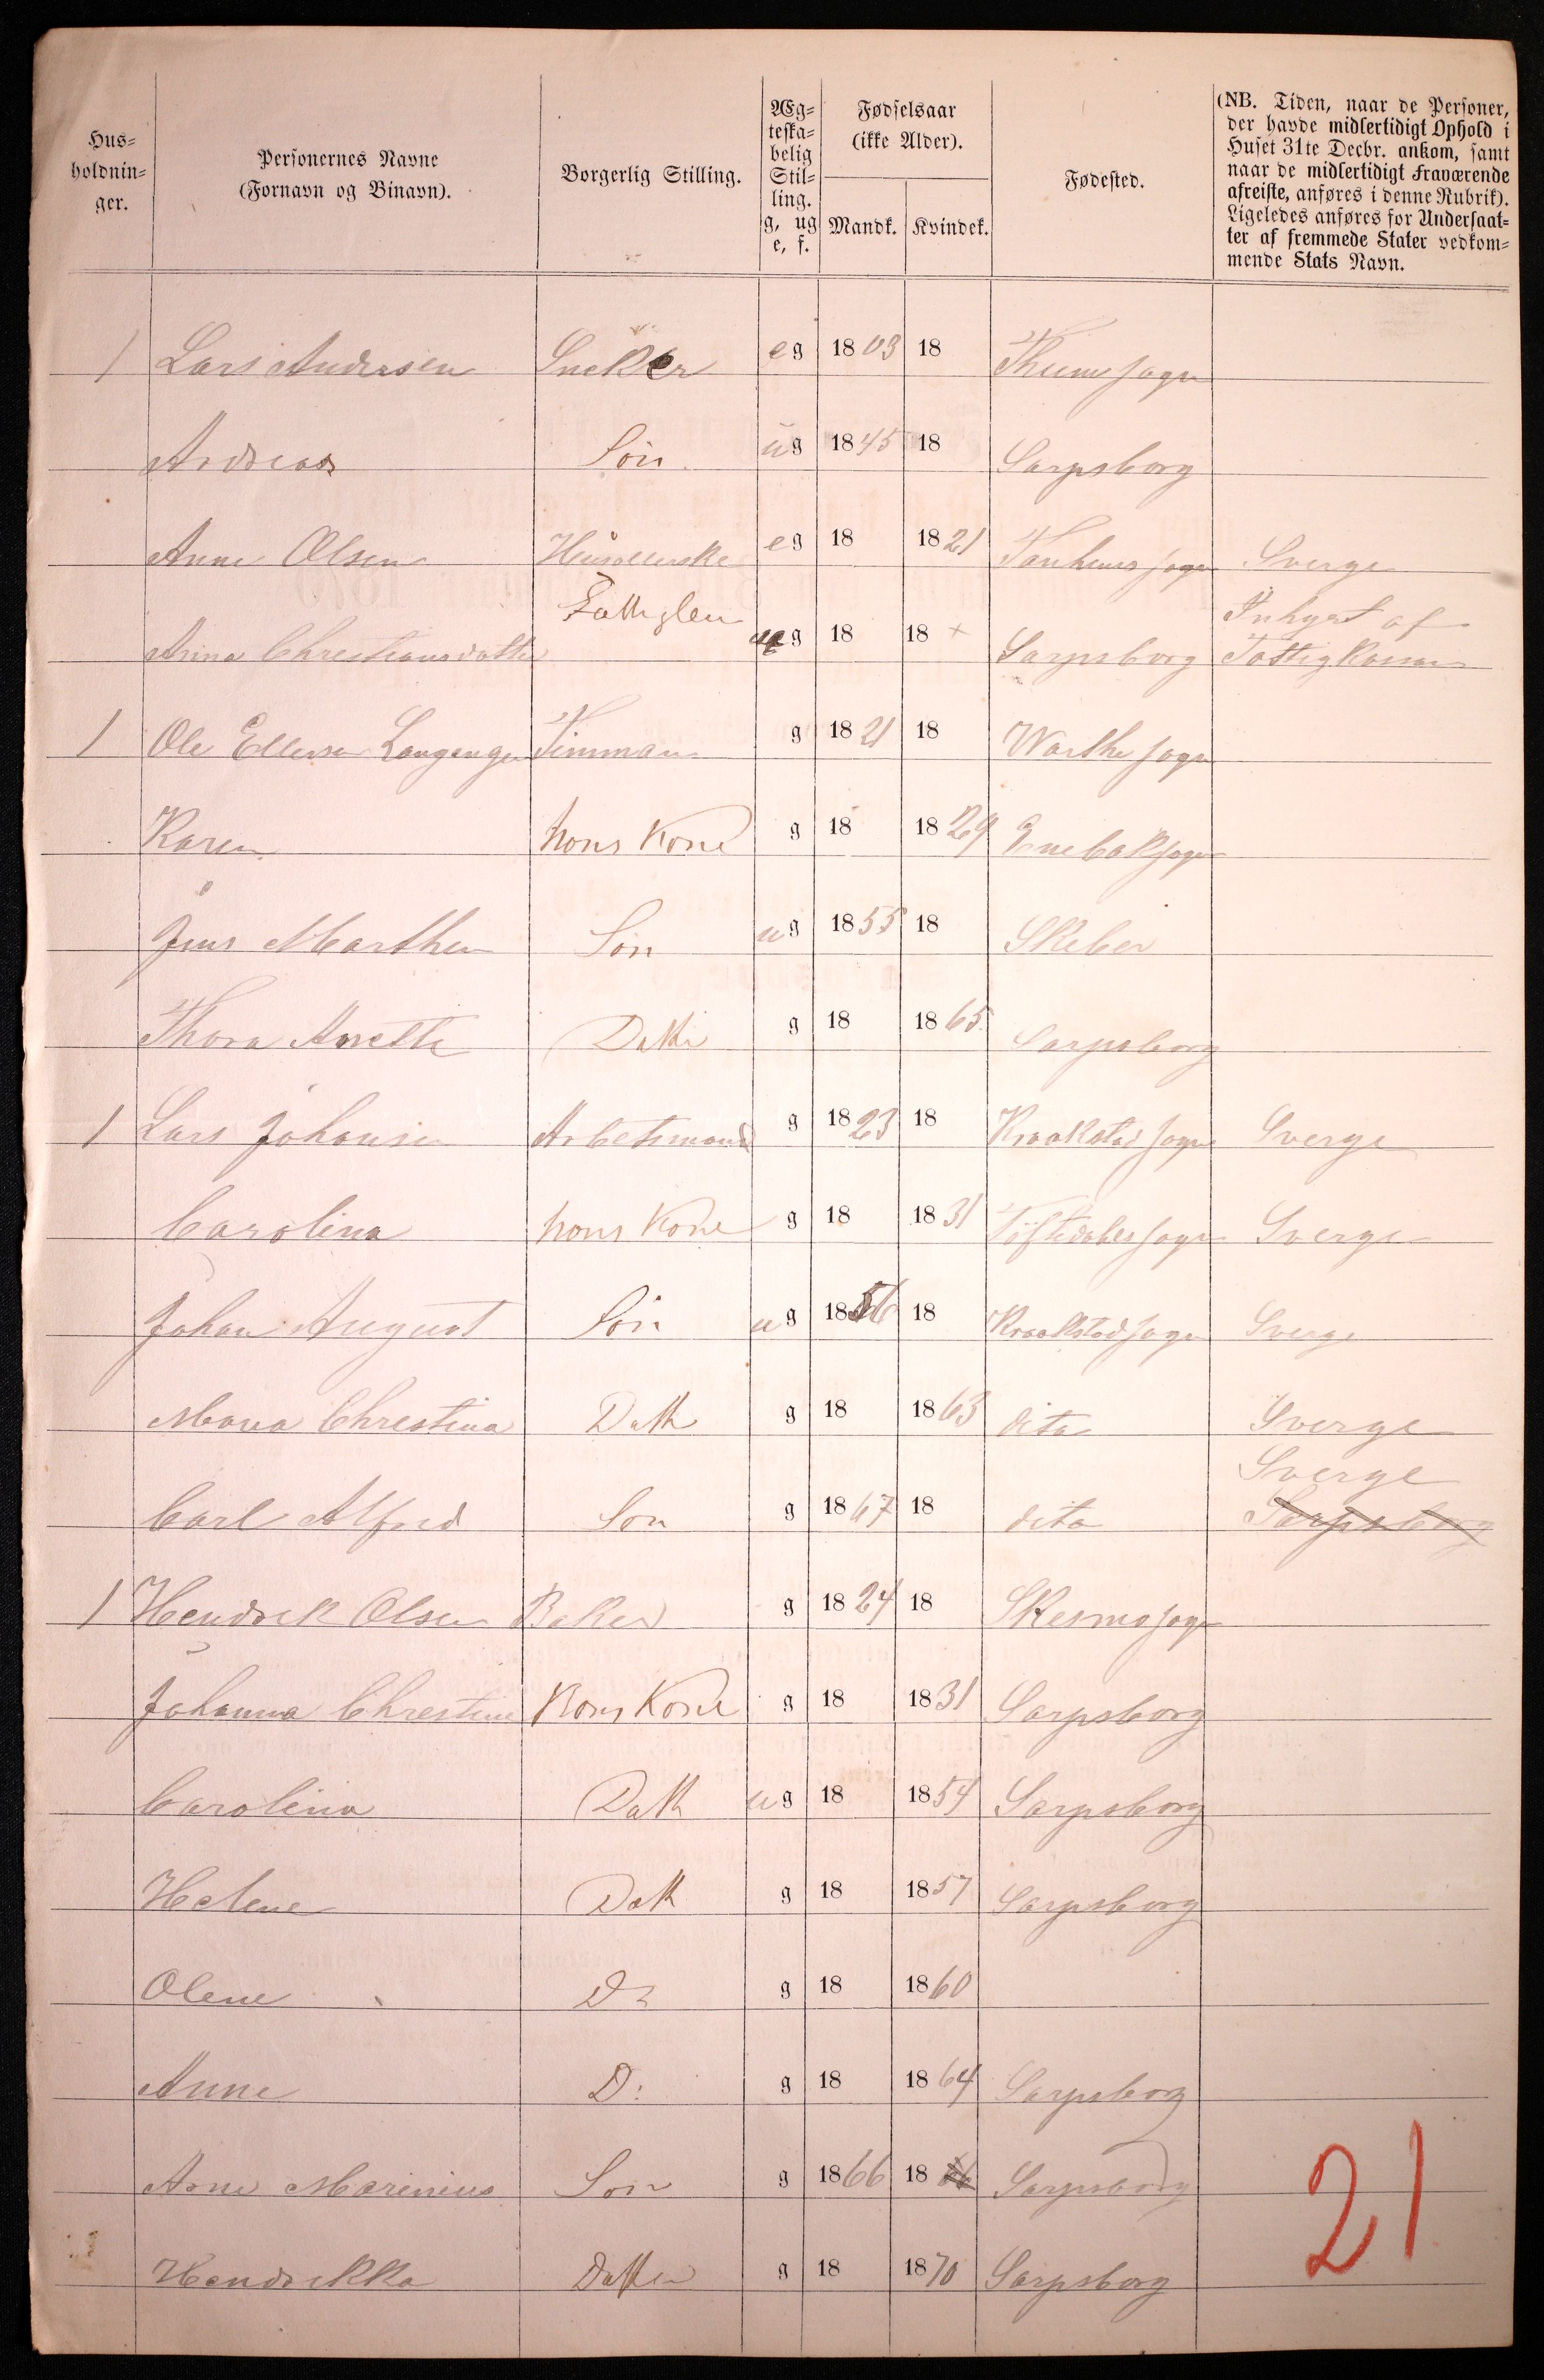 Hus-
holdnin-
ger.
Personernes Navne
(Fornavn og Binavn).
Borgerlig Stilling.
Æg-
teska-
belig
Stil-
ling.
g, ug
e, f.
Fødselsaar
(ikke Alder).
Mandk. Kvindek.
Fødested.
(NB. Tiden, naar de Personer,
der havde midlertidigt Ophold i
Huset 31te Decbr. ankom, samt
naar de midlertidigt Fraværende
afreiste, anføres i denne Rubrik).
Ligeledes anføres for Undersaat-
ter af fremmede Stater vedkom-
mende Stats Navn.
1 Lars Andersen Snekker eg 1803 18 Thune sogn
Andreas Sön ug 1845 18 Sarpsborg
Anne Olsen eg 18 1821 Tanhems sogn Sverge
Anna Chrestiansdatter Fattiglem ug 18 18 + Sarpsborg af Fattigkassen
1 Ole Langangen Timman g 1821 18 sogn
Karen hans Kone g 18 1829 Enebak sogn
Jens Marthen Sön ug 1855 18 Skeber
Thora Anette Datter g 18 1865 Sarpsborg
1 Lars Johansen Arbetsmand g 1823 18 Kraakstad sogn Sverge
Carolina hans Kone g 18 1831 Töftedahls sogn Sverge
Johan August Sön ug 1856 18 Kraakstad sogn Sverge
Maria Chrestina Datt g 18 1863 dito Sverge
Carl Alfred Son g 1867 18 dito Sverge Sarpsborg
1 Hendrek Olsen Baker g 1824 18 Skesmo sogn
Johanna Chrestine Hans Kone g 18 1831 Sarpsborg
Carolina Datt ug 18 1854 Sarpsborg
Helene Datt g 18 1857 Sarpsborg
Olene D: g 18 1860
Anne D: g 18 1864 Sarpsborg
Arne Marinius Son g 1866 18 Sarpsborg
Hendrekka Datter g 18 1870 Sarpsborg
21